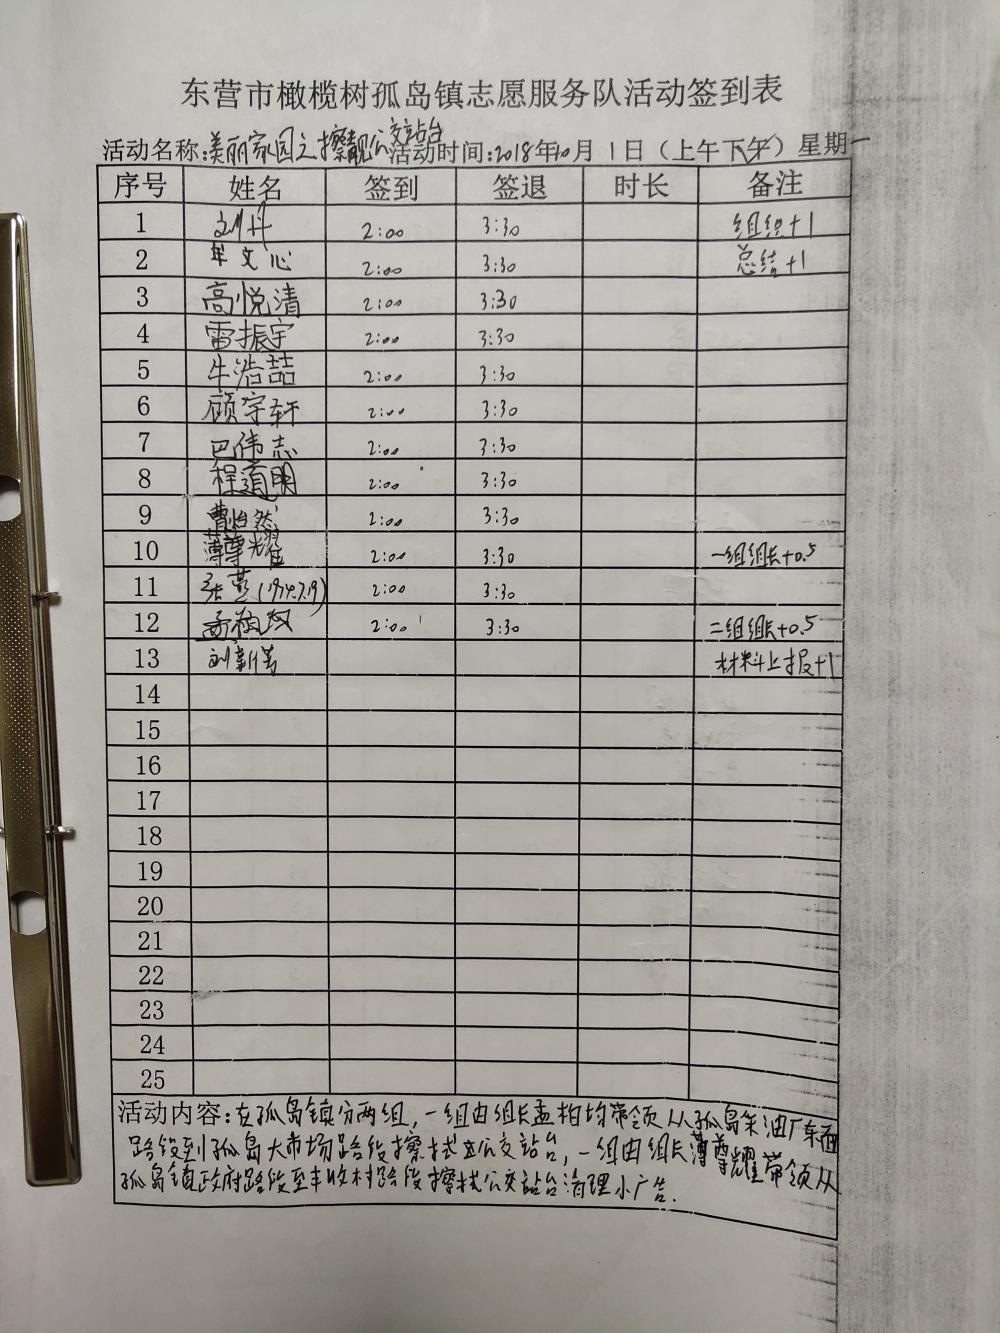 东营市橄榄树孤岛镇志愿服务队活动签到表
活动名称:美丽家园之擦靓公交站台 活动时间:2018年10月1日(上午下午)星期一
序号 姓名 签到 签退 时长 备注
1 刘丹 2:00 3:30 组织+1
2 年文心 2:00 3:30 总结+1
3 高悦清 2:00 3:30
4 雷振宇 2:00 3:30
5 牛浩喆 2:00 3:30
6 顾宇轩 2:00 3:30
7 巴伟志 2:00 3:30
8 程道明 2:00 3:30
9 曹怡然 2:00 3:30
10 薄尊耀 2:00 3:30 一组组长+0.5
11 张蕾(1974.7.19) 2:00 3:30
12 孟柏均 2:00 3:30 二组组长+0.5
13 刘新 材料上报+1
14
15
16
17
18
19
20
21
22
23
24
25
活动内容:在孤岛镇分两组,一组由组长孟柏均带领从孤岛采油厂东面
路段到孤岛大市场路段擦拭公交站台,一组由组长薄尊耀带领从
孤岛镇政府路段至丰收村路段擦拭公交站台清理小广告.